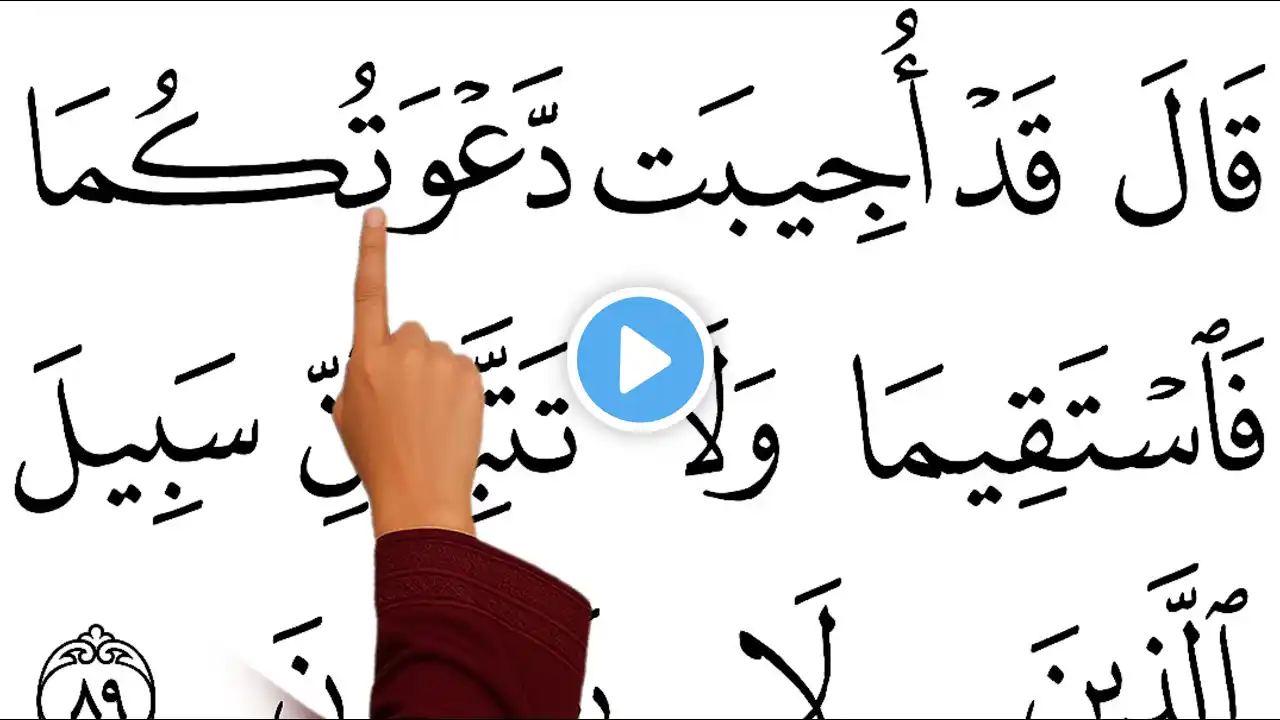 قَالَ قَدۡ أُجِيبَت دَّعۡوَتُكُمَا
فَٱسۡتَقِيمَا وَلَا سَبِيلَ
ٱلَّذِينَ لَا ٨٩